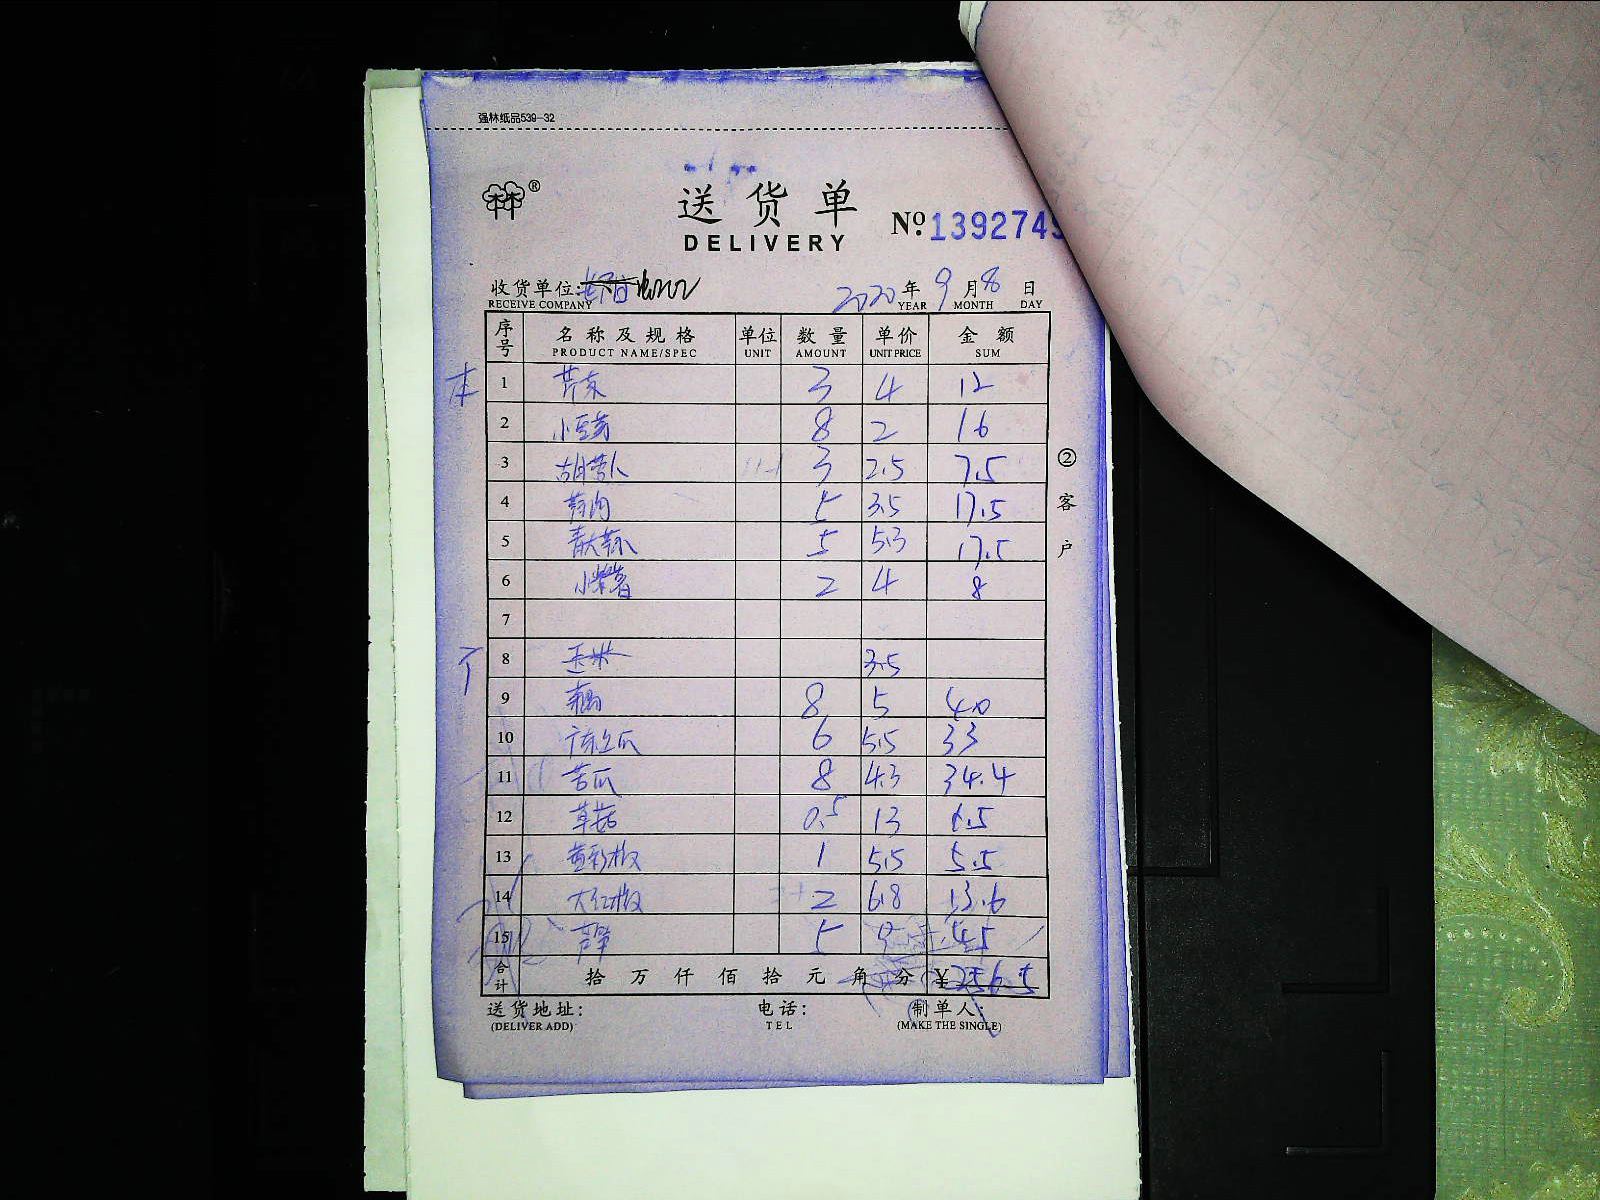 强林纸品539-32
送货单
DELIVERY
® № 1392749
收货单位: 2020年9月8日
RECEIVE COMPANY YEAR MONTH DAY
序号 名称及规格 单位 数量 单价 金额
PRODUCT NAME/SPEC UNIT AMOUNT UNIT PRICE SUM
本 1 芹菜 3 4 12
2 小豆芽 8 2 16
3 胡萝卜 3 2.5 7.5
4 5 3.5 17.5
5 5 5.3 17.5
6 小紫薯 2 4 8
7
8 玉米 3.5
9 8 5 40
10 广东丝瓜 6 5.5 33
11 苦瓜 8 4.3 34.4
12 草菇 0.5 13 6.5
13 黄彩椒 1 5.5 5.5
14 大红椒 2 6.8 13.6
15 芦笋 5 9 45
合计 拾万仟佰拾元角分 ¥256.5
送货地址: 电话: 制单人:
(DELIVER ADD) TEL (MAKE THE SINGLE)
②客户